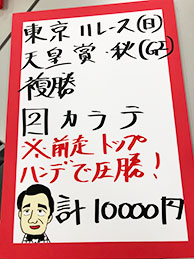 東京11レース(日)
天皇賞・秋(G1)
複勝
2 カラテ
※前走トップ
ハンデで圧勝!
計10000円